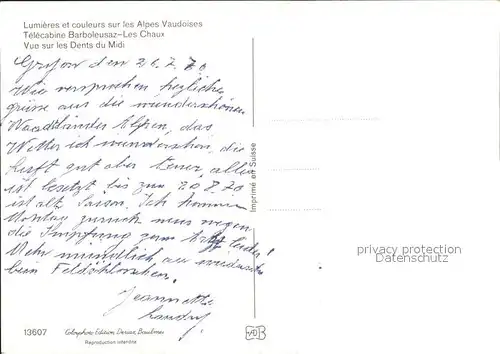 Lumières et couleurs sur les Alpes Vaudoises
Télécabine Barboleusaz-Les Chaux
Vue sur les Dents du Midi
Gryon den 26.7.70
Wie versprochen herzliche
grüsse aus die wunderschönen
Waadtländer Alpen, das
Wetter ist wunderschön, die
Luft gut aber teuer, alles
ist besetzt bis zum 20.8.70
ist alt saison. Ich komme
Montag zurück muss wegen
die Impfung zum Arzt leider!
Mehr mündlich
beim Feldschlösschen.
Jeannette
Landry
Imprimé en Suisse
privacy protection
Datenschutz
13607
Colorphoto Edition Deriaz, Baulmes
Reproduction interdite